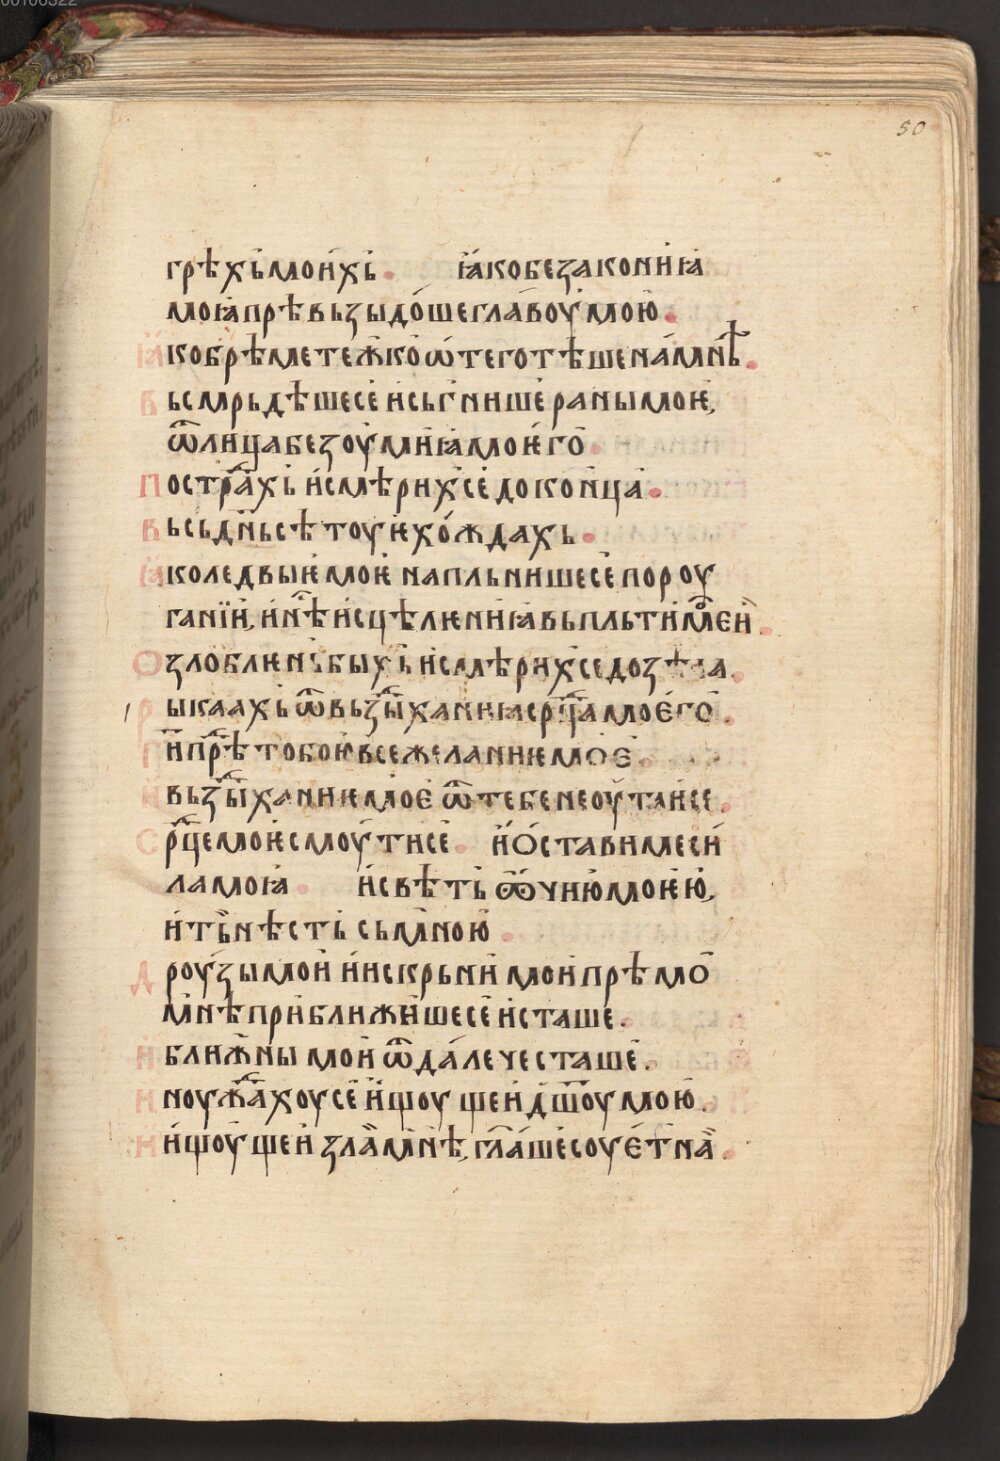 50
грѣхь моихь. ꙗко безакониꙗ
моꙗ прѣвьзыдоше главоу мою.
ꙗко брѣме тежко ѡтеготѣше на мнѣ.
вьсмрьдѣше се и сьгнише раны мое,
ѿ лица безоумиꙗ моѥго.
пострахь и смѣрих се до конца.
вьсь днь сѣтоуѥ хождахь.
ꙗко ледвыѥ моѥ напльнише се пороу
ганїи, и нѣ исцѣлѥниꙗ вь пльти моеи.
озлоблѥнь быхь и смѣрих се до зѣла.
рыкаахь ѿ вьздыханиꙗ срца моего.
ги прѣ тобою все желаниѥ мое.
и вьздыханиѥ мое ѿ тебе не оутаи се.
срце моѥ смоути се. и остави ме си
ла моꙗ. и свѣть ѡчию моѥю,
и ть нѣсть сь мною.
дроузы мои и искрьни мои прѣмо
мнѣ приближише се и сташе.
и ближны мои ѿдалече сташе.
и ноуждахоу се ищоущеи дшоу мою.
и ищоущеи зла мнѣ, глаше соуетна.